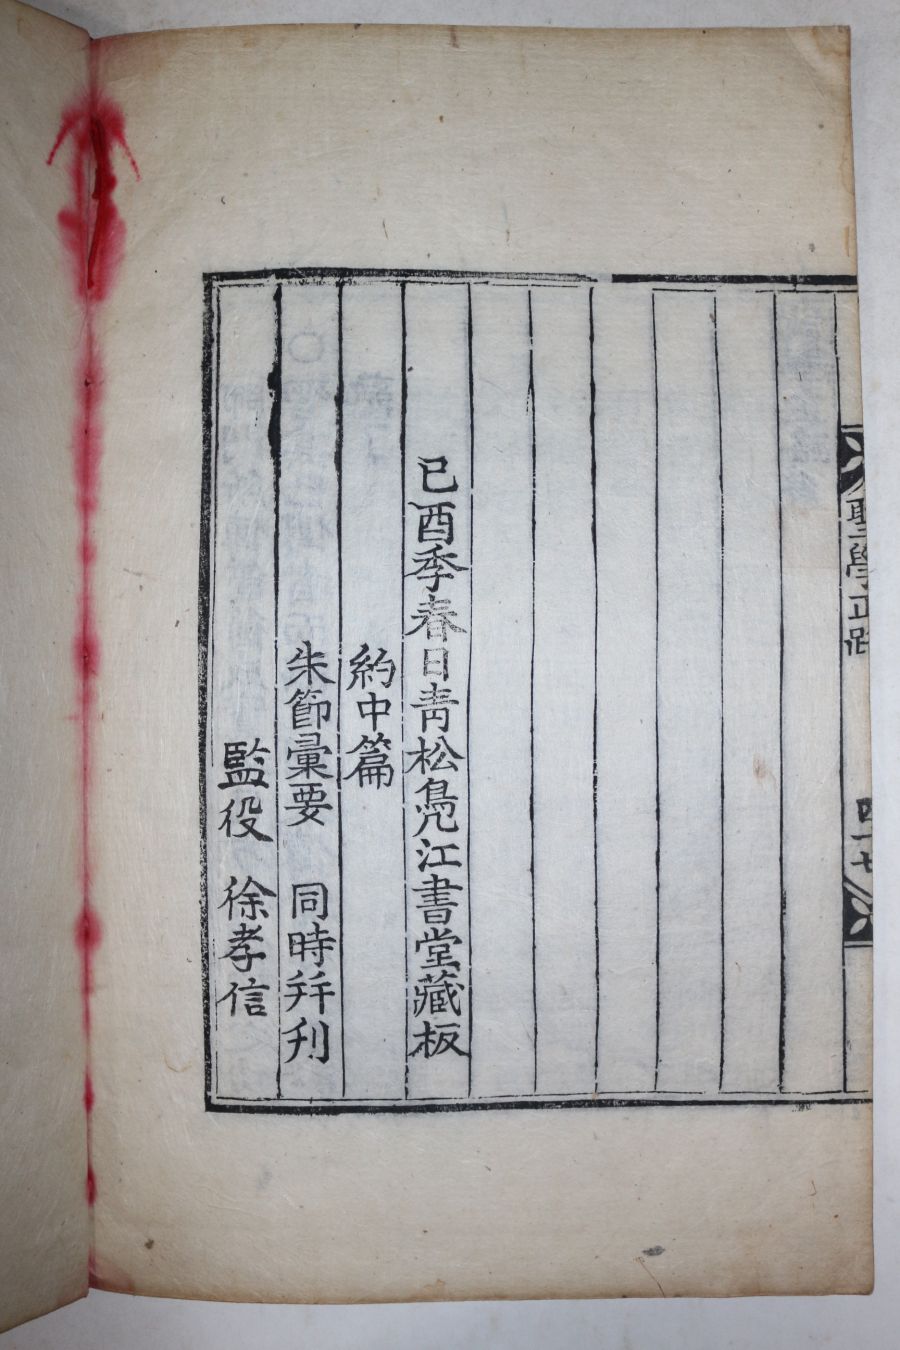 聖學正路
四十七
己酉季春日靑松鳧江書堂藏板
約中篇
朱節彙要 同時幷刊
監役 徐孝信